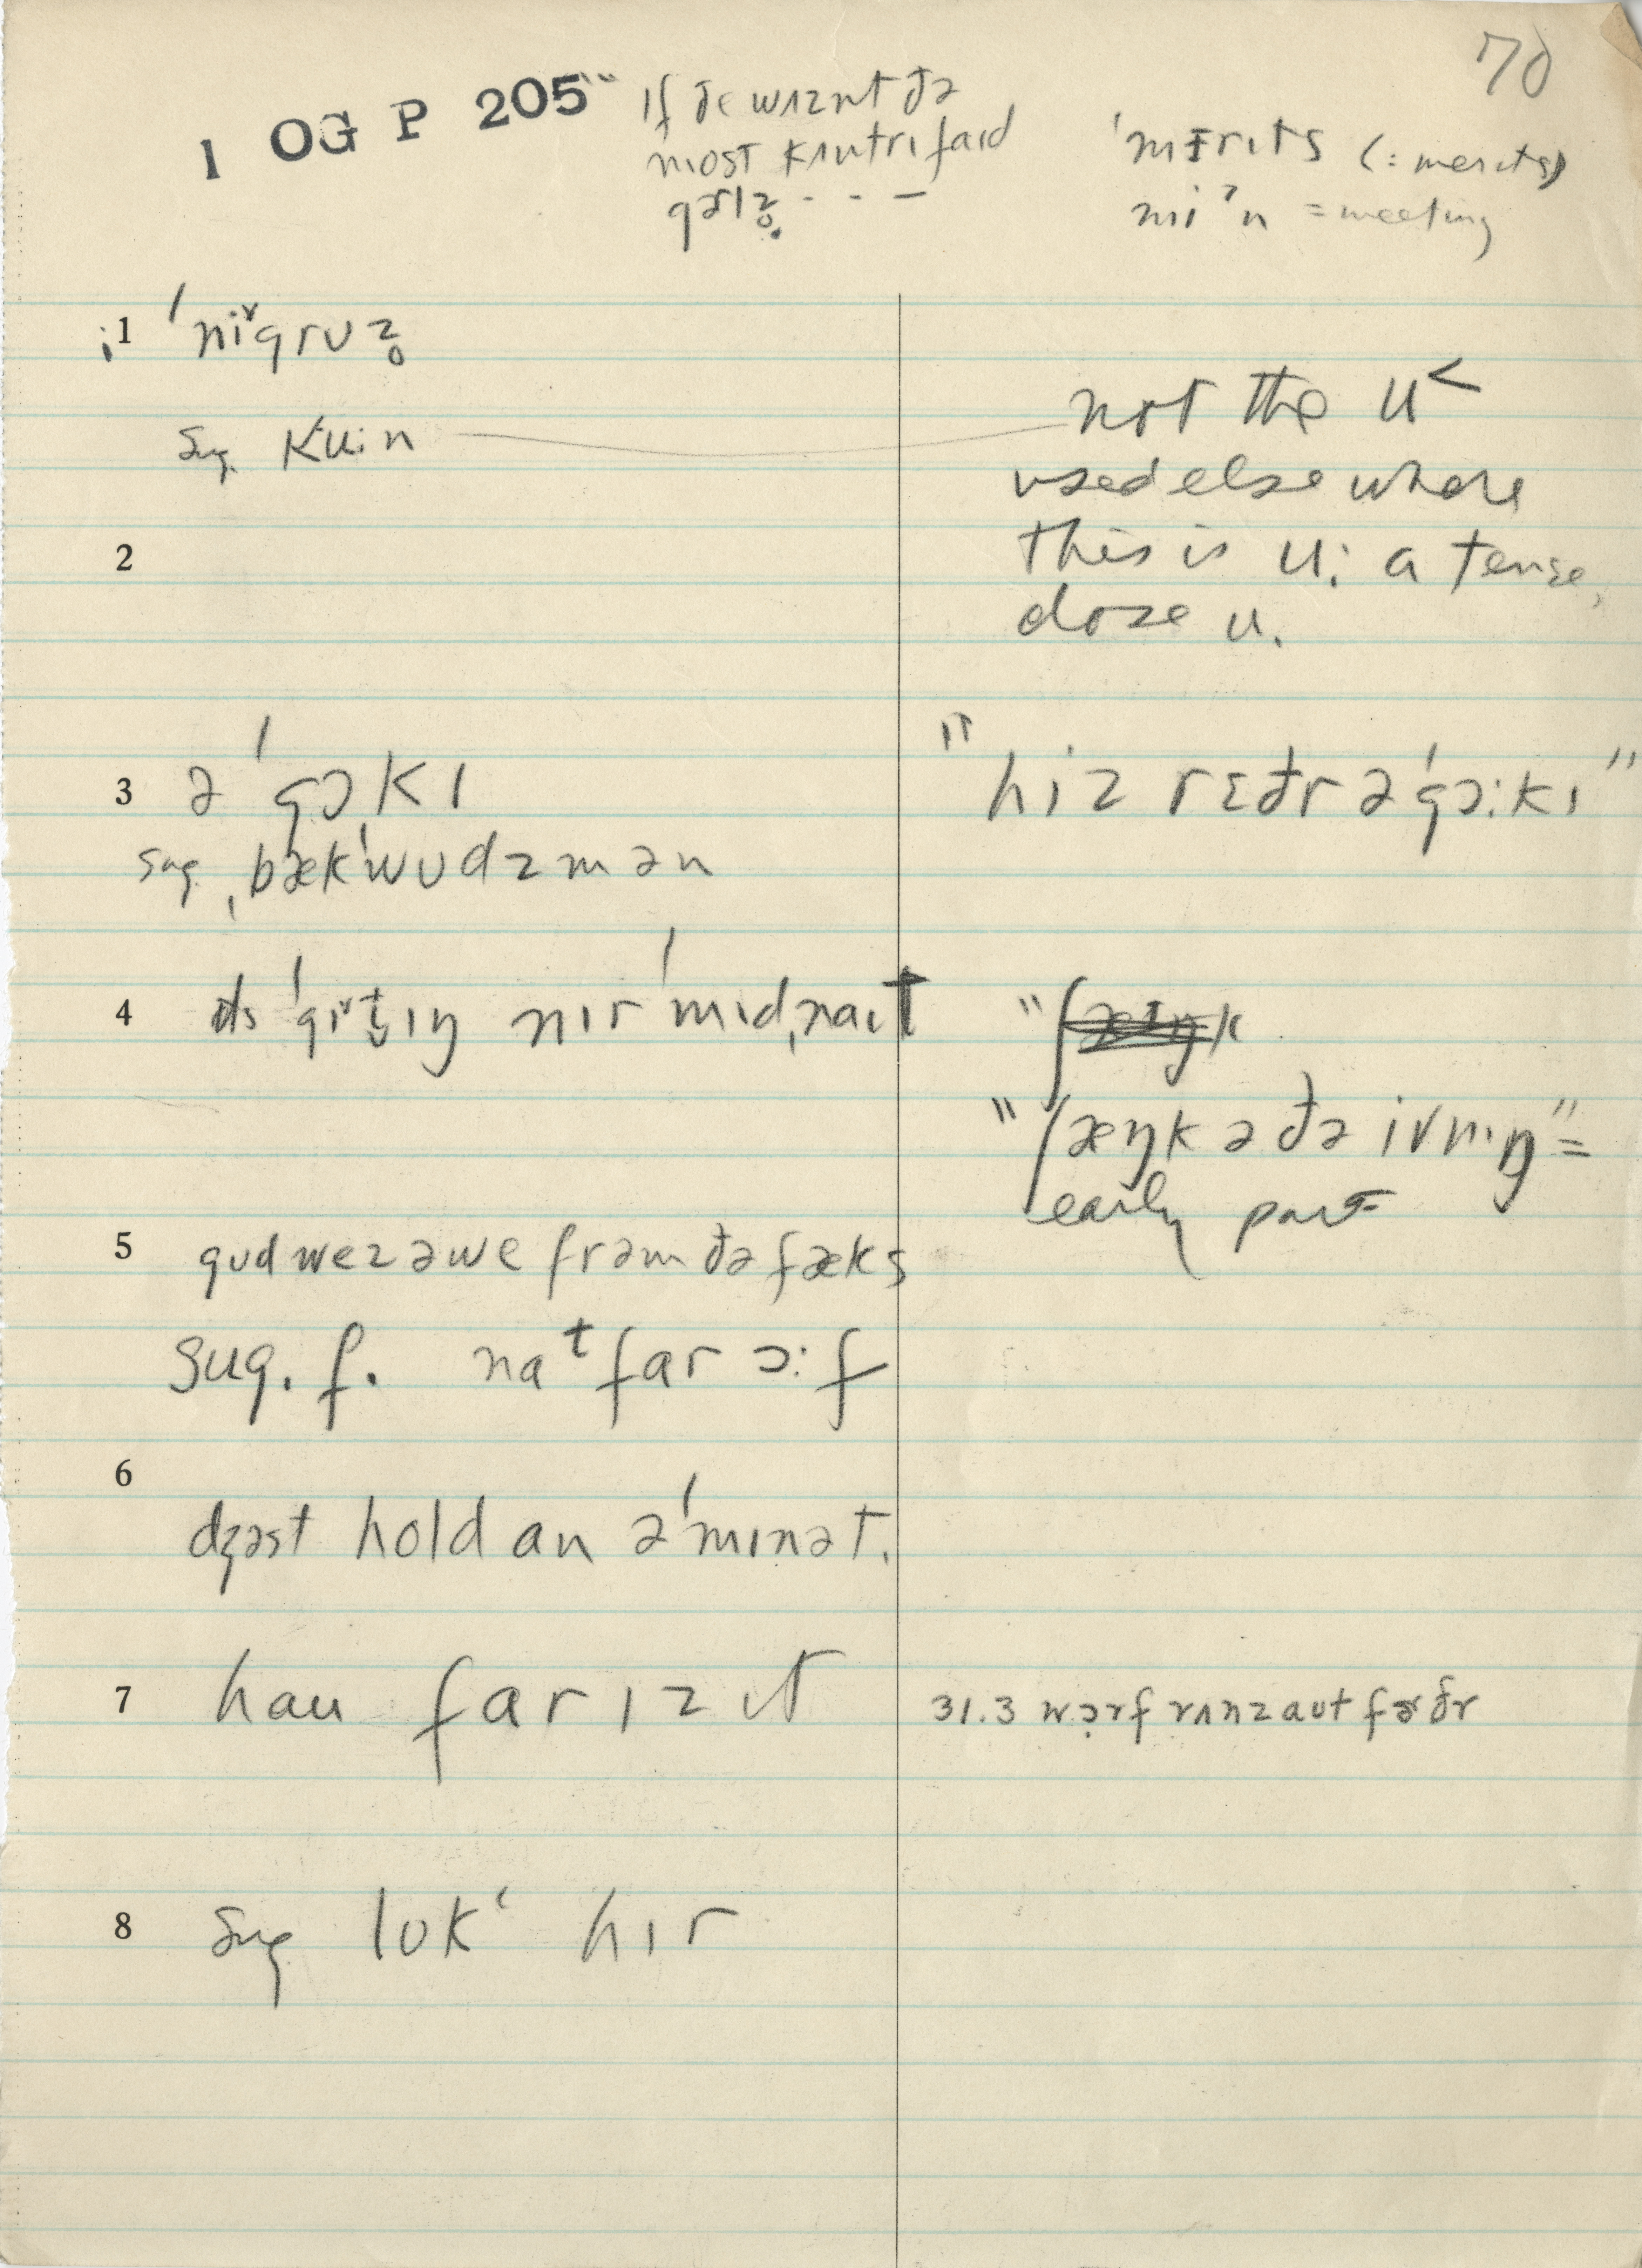 70
1 OG P 205
"ɪf ðe wʌznt ðə
most kʌntrɪfaɪd
gərlz̥. - - -
ˈmɛrɪts (= merits)
miˀn = meeting
1 ˈniᵛgrʊz̥
sug. kuːn
not the u˂
used elsewhere
this is uː a tense,
close u.
2
3 ə ˈgɔkɪ
"hiz rɛðr ə ˈgɔːkɪ"
sug. ˌbækˈwʊdzmən
4 ɪts ˈgɪᵛt̬ɪŋ nɪr ˈmɪdˌnaɪt
"ʃæŋk ə ðə ivnɪŋ" =
early part
5 gʊd wez əwe frəm ðə fæks
sug. f. naᵗ far ɔːf
6
dʒəst hold an əˈmɪnət.
7 hau far ɪz ɪt
31.3 wɔrf rʌnz aʊt fɚðr
8 sug lʊkʻ hɪr